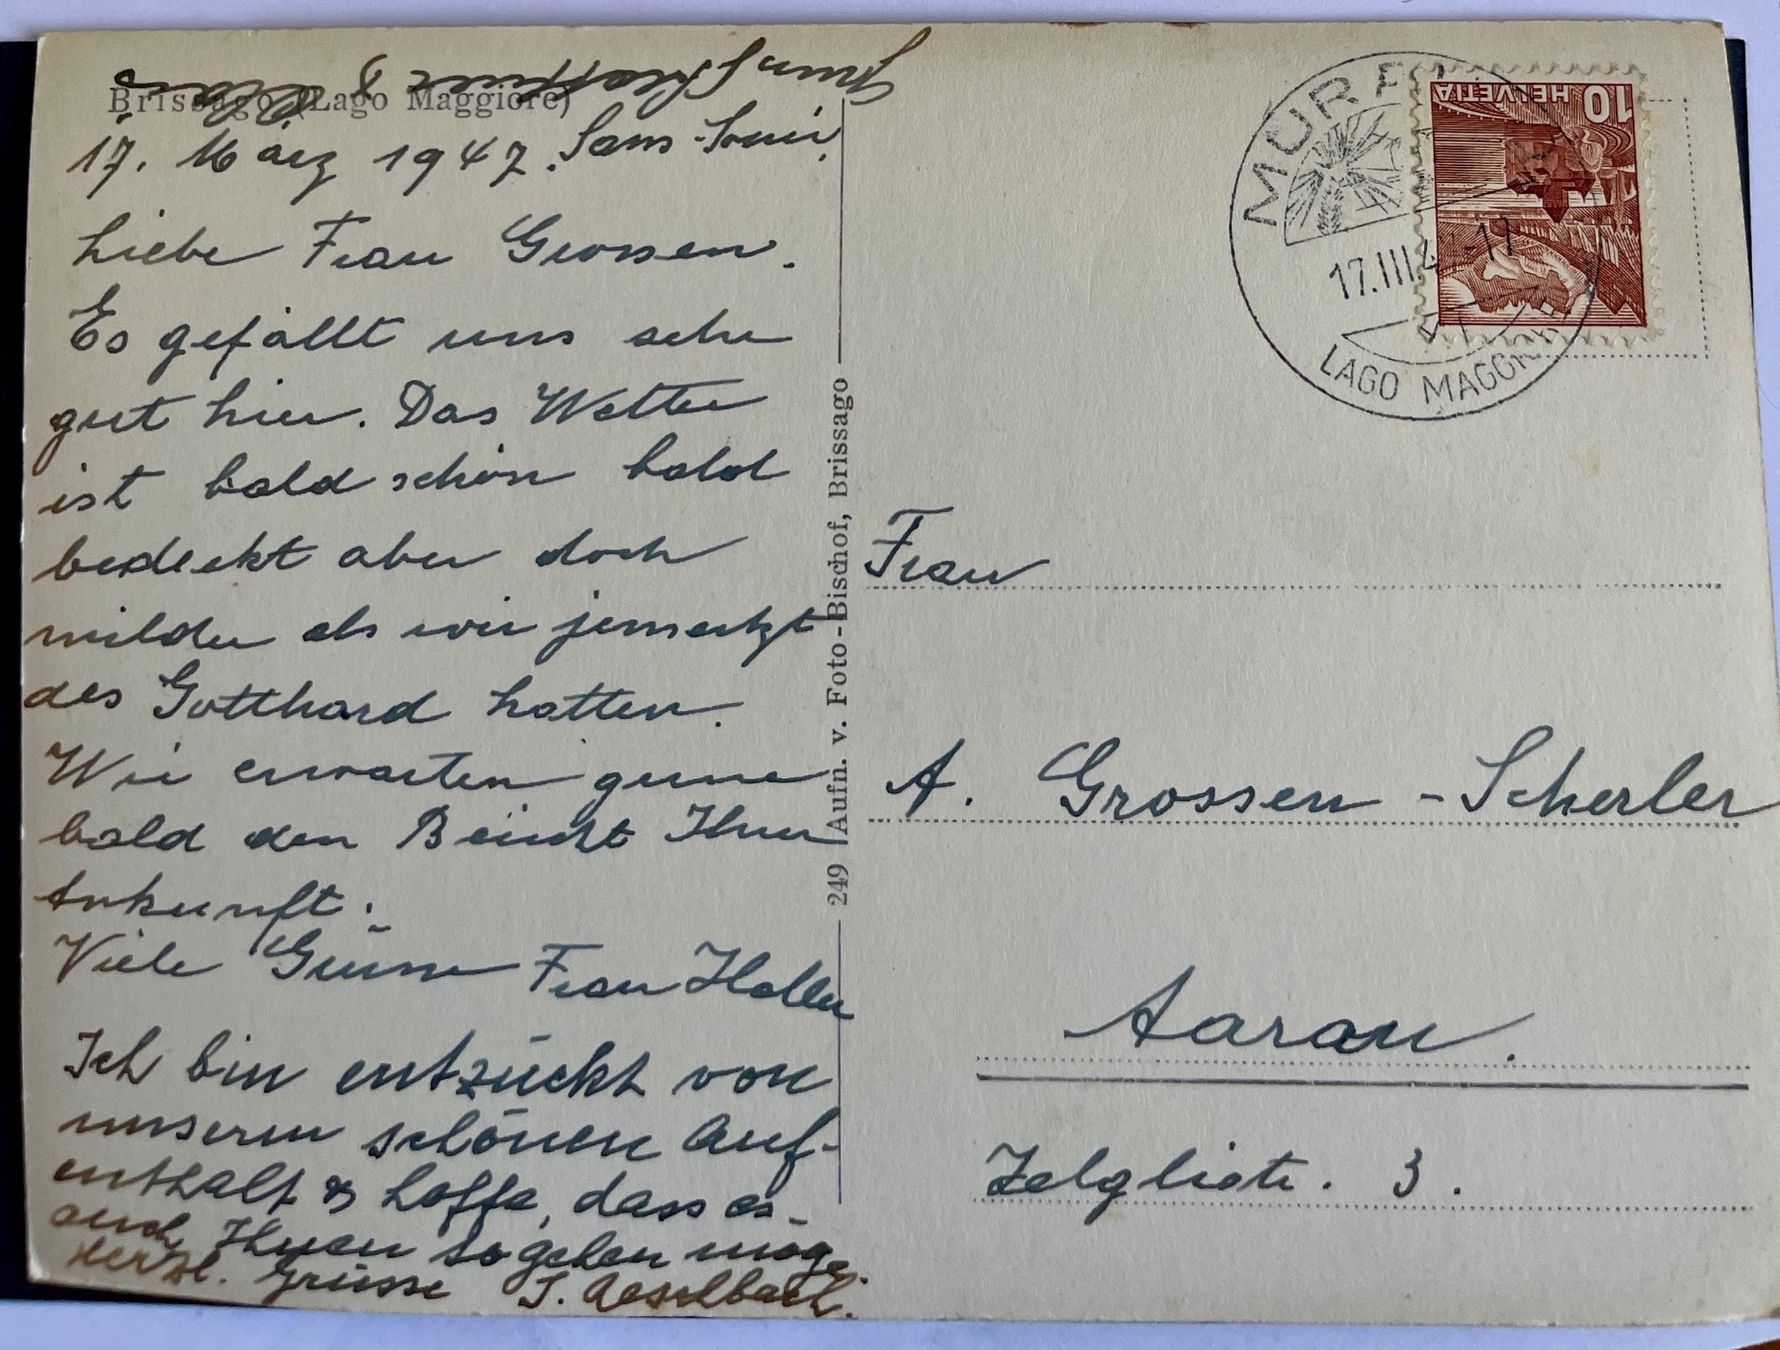 Brissago (Lago Maggiore)
17. März 1947. Sans-Souci.
Liebe Frau Grossen.
Es gefällt uns sehr
gut hier. Das Wetter
ist bald schön bald
bedeckt aber doch
milder als wir jenseitz
des Gotthard hatten.
Wir erwarten gerne
bald den Bericht Ihrer
Ankunft.
Viele Grüsse Frau Haller
Ich bin entzückt von
unserm schönen Auf-
enthalt & hoffe, dass es
auch Ihnen so gehen möge.
Herzl. Grüsse J. Aeschbach.
249 Aufn. v. Foto-Bischof, Brissago
HELVETIA
10
17.III.4 -17
LAGO MAGGIORE
Frau
A. Grossen-Scherler
Aarau.
Zelglistr. 3.